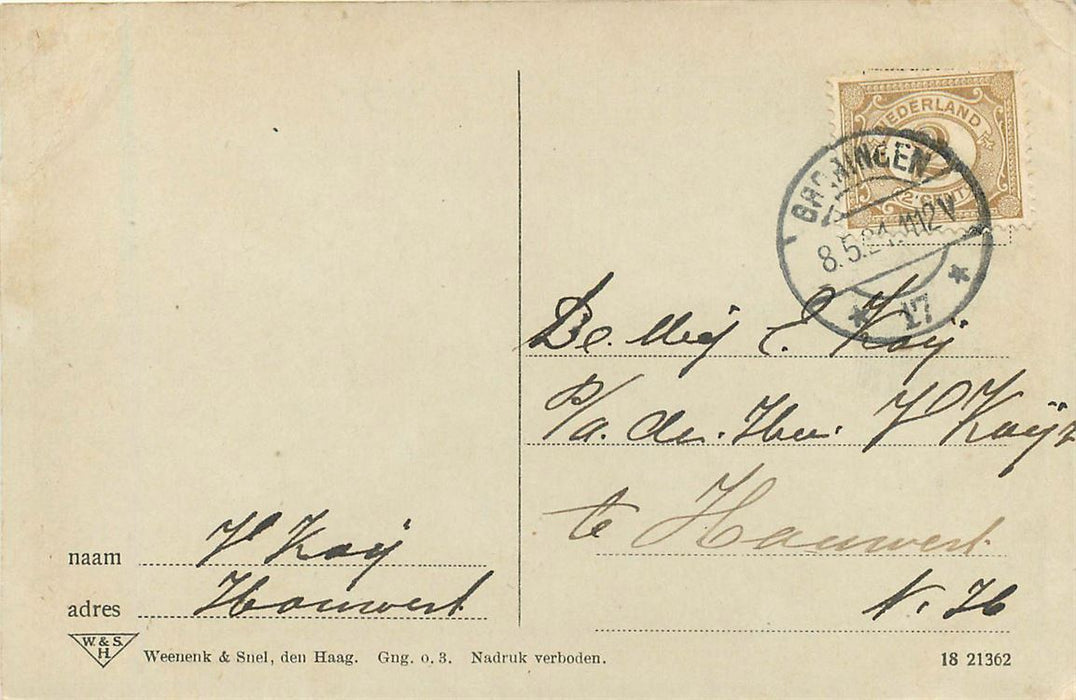 NEDERLAND
2 CENT
GRONINGEN
8.5.21.1112V
17
De Mej E. Kaij
P/a. den. Heer V Kaij
te Hauwert
N. H
naam V Kaij
adres Hauwert
W. & S.
H.
Weenenk & Snel, den Haag. Gng. o. 3. Nadruk verboden.
18 21362